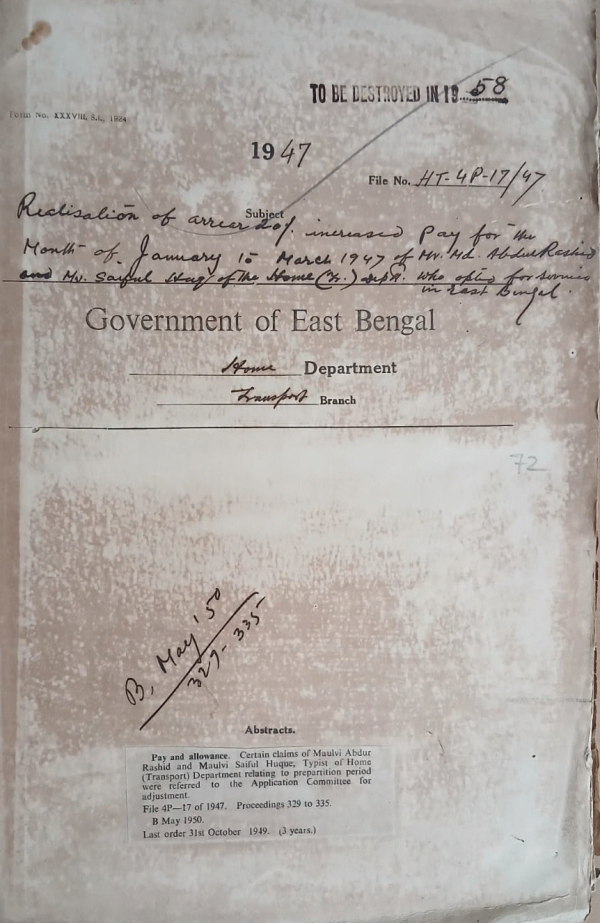 TO BE DESTROYED IN 19 58
Form No. XXXVIII, S.I., 1924
1947
File No. HT-4P-17/47
Subject
Realisation of arrear of increased pay for the
Month of January to March 1947 of Mr. Md. Abdur Rashid
and Mv. Saiful Huq of the Home (Tr.) Deptt. who opted for service
in East Bengal.
Government of East Bengal
Home Department
Transport Branch
72
B, May '50
329-335
Abstracts.
Pay and allowance. Certain claims of Maulvi Abdur
Rashid and Maulvi Saiful Huque, Typist of Home
(Transport) Department relating to prepartition period
were referred to the Application Committee for
adjustment.
File 4P—17 of 1947. Proceedings 329 to 335.
B May 1950.
Last order 31st October 1949. (3 years.)